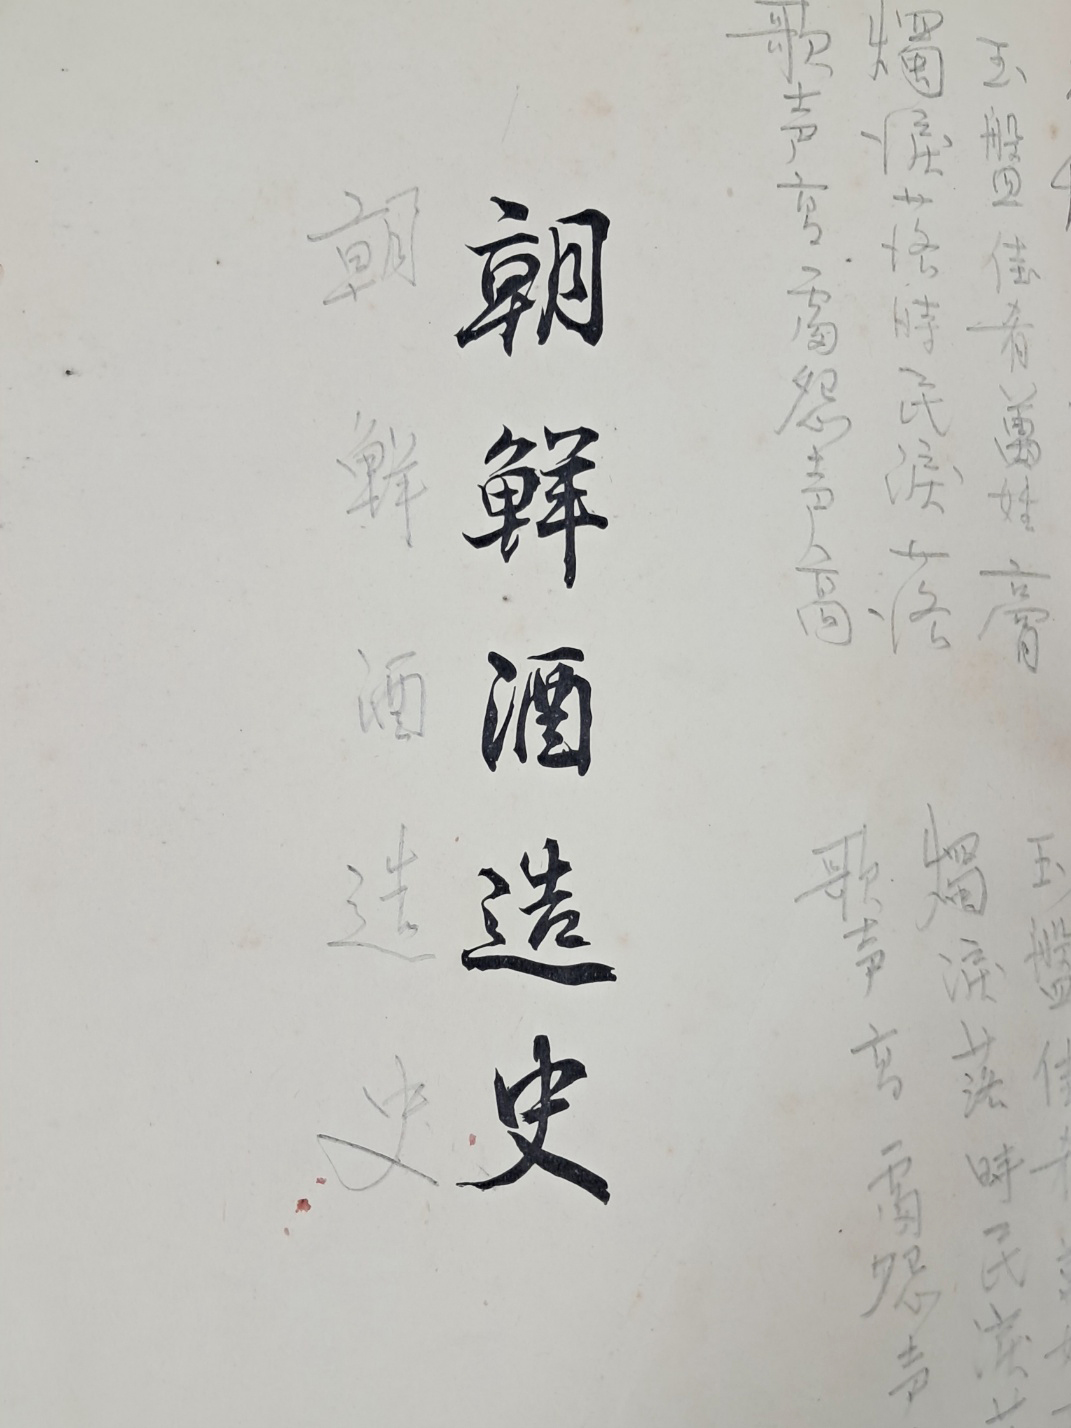 玉盤佳肴萬姓膏
燭淚落時民淚落
歌声高處怨声高
玉盤佳肴
燭淚落時民淚
歌声高處怨声
朝鮮酒造史
朝鮮酒造史